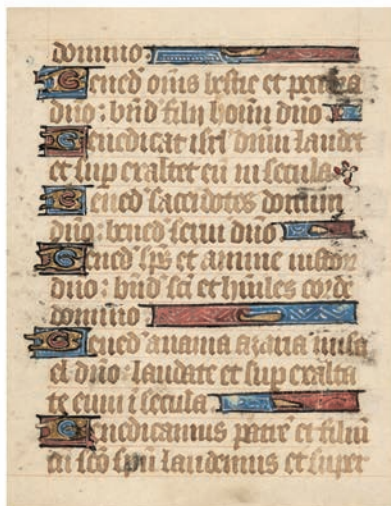 domino:
Bened omĩs bestie et pecora
dño: bñd filij hoim dño
Benedicat isrl dñm laudet
et sup exaltet eũ in secula
Bened sacerdotes domini
dño: bened serui dño
Bened sps et anime iustor
dño: bñd sci et hũiles corde
domino
Bened anania azaria misa
el dño: laudate et sup exalta
te eum i secula
Benedicamus patrẽ et filiũ
cũ sco spũ laudemus et super